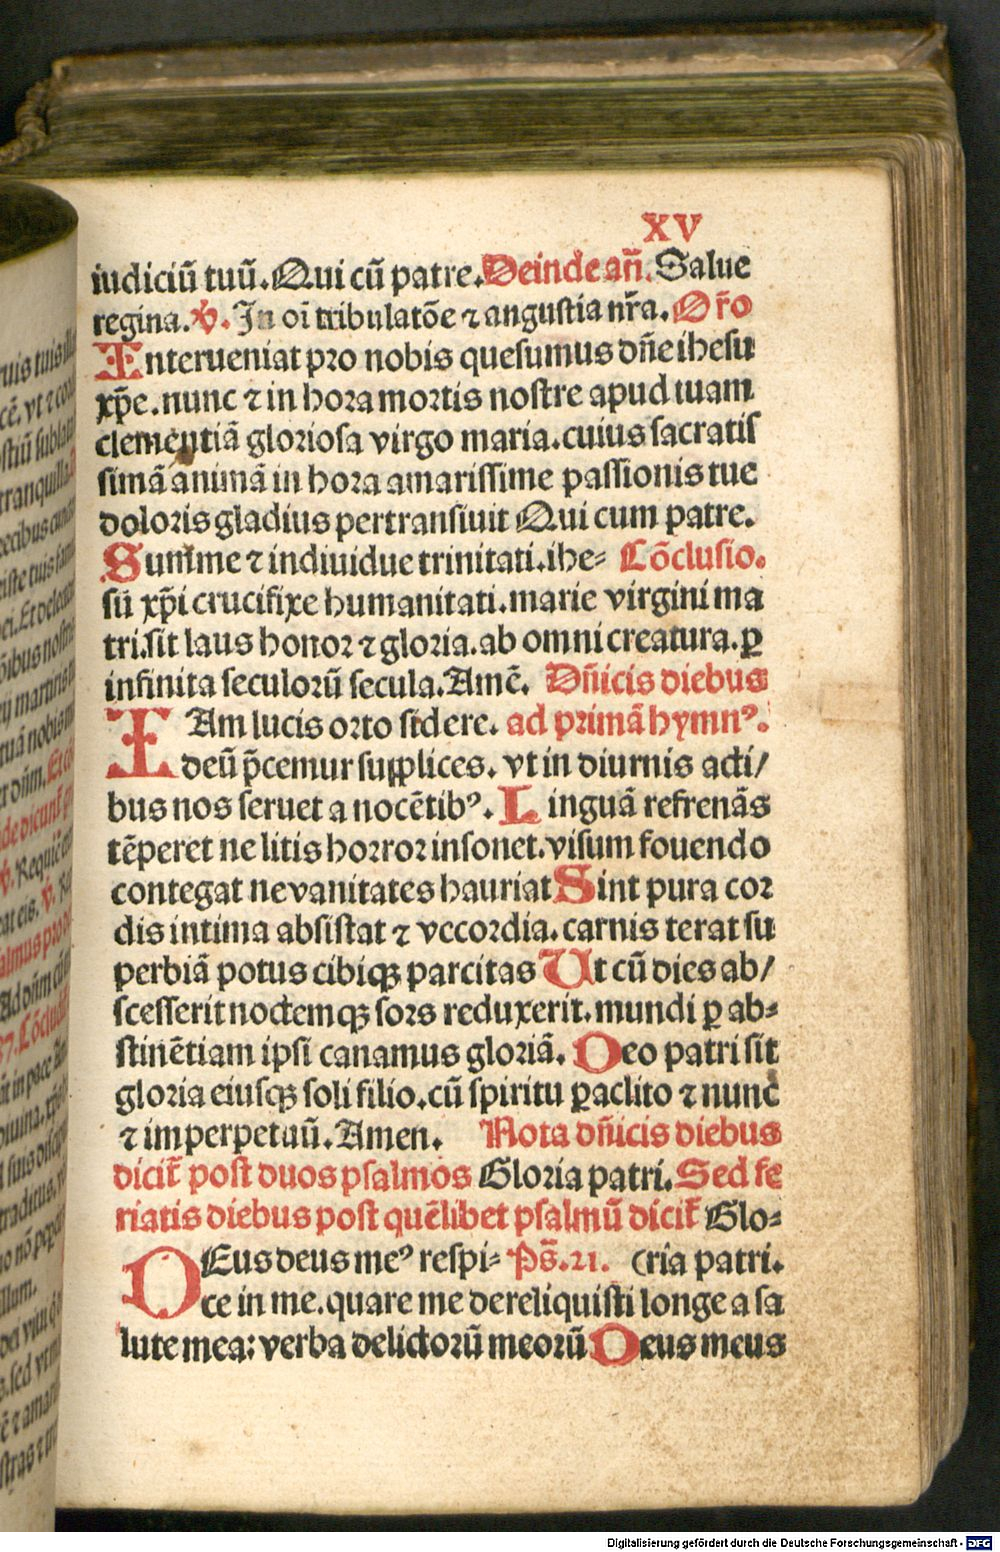 XV
iudiciū tuū. Qui cū patre. Deinde añ. Salue
regina. ℣. In oī tribulatōe ⁊ angustia nr̄a. Or̄o
Interueniat pro nobis quesumus dn̄e ihesu
xp̄e. nunc ⁊ in hora mortis nostre apud tuam
clementiā gloriosa virgo maria. cuius sacratis
simā animā in hora amarissime passionis tue
doloris gladius pertransiuit Qui cum patre.
Summe ⁊ indiuidue trinitati. ihe= Cōclusio.
sū xp̄i crucifixe humanitati. marie virgini ma
tri. sit laus honor ⁊ gloria. ab omni creatura. ꝑ
infinita seculorū secula. Amē. Dn̄icis diebus
IAm lucis orto sidere. ad primā hymnꝰ.
deū p̄cemur supplices. vt in diurnis acti/
bus nos seruet a nocētibꝰ. Linguā refrenās
tēperet ne litis horror insonet. visum fouendo
contegat ne vanitates hauriat Sint pura cor
dis intima absistat ⁊ vecordia. carnis terat su
perbiā potus cibiqꝫ parcitas Ut cū dies ab/
scesserit noctemqꝫ sors reduxerit. mundi ꝑ ab=
stinētiam ipsi canamus gloriā. Deo patri sit
gloria eiusqꝫ soli filio. cū spiritu ꝑaclito ⁊ nunc
⁊ imperpetuū. Amen. Nota dn̄icis diebus
dicit̄ post duos psalmos Gloria patri. Sed fe
riatis diebus post quēlibet psalmū dicit̄ Glo=
DEus deus meꝰ respi= Ps̄. 21. (ria patri.
ce in me. quare me dereliquisti longe a sa
lute mea: verba delictorū meorū Deus meus
Digitalisierung gefördert durch die Deutsche Forschungsgemeinschaft - DFG